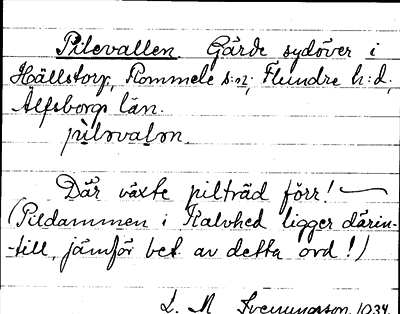 Pilevallen. Gärde sydöver i
Hällstorp, Rommele s:n, Flundre h:d,
Älfsborgs län.
pìləvalən.
Där växte pilträd förr!
(Pildammen i Kalvhed ligger därin-
-till, jämför bet. av detta ord!)
L. M. Svenungsson 1934.